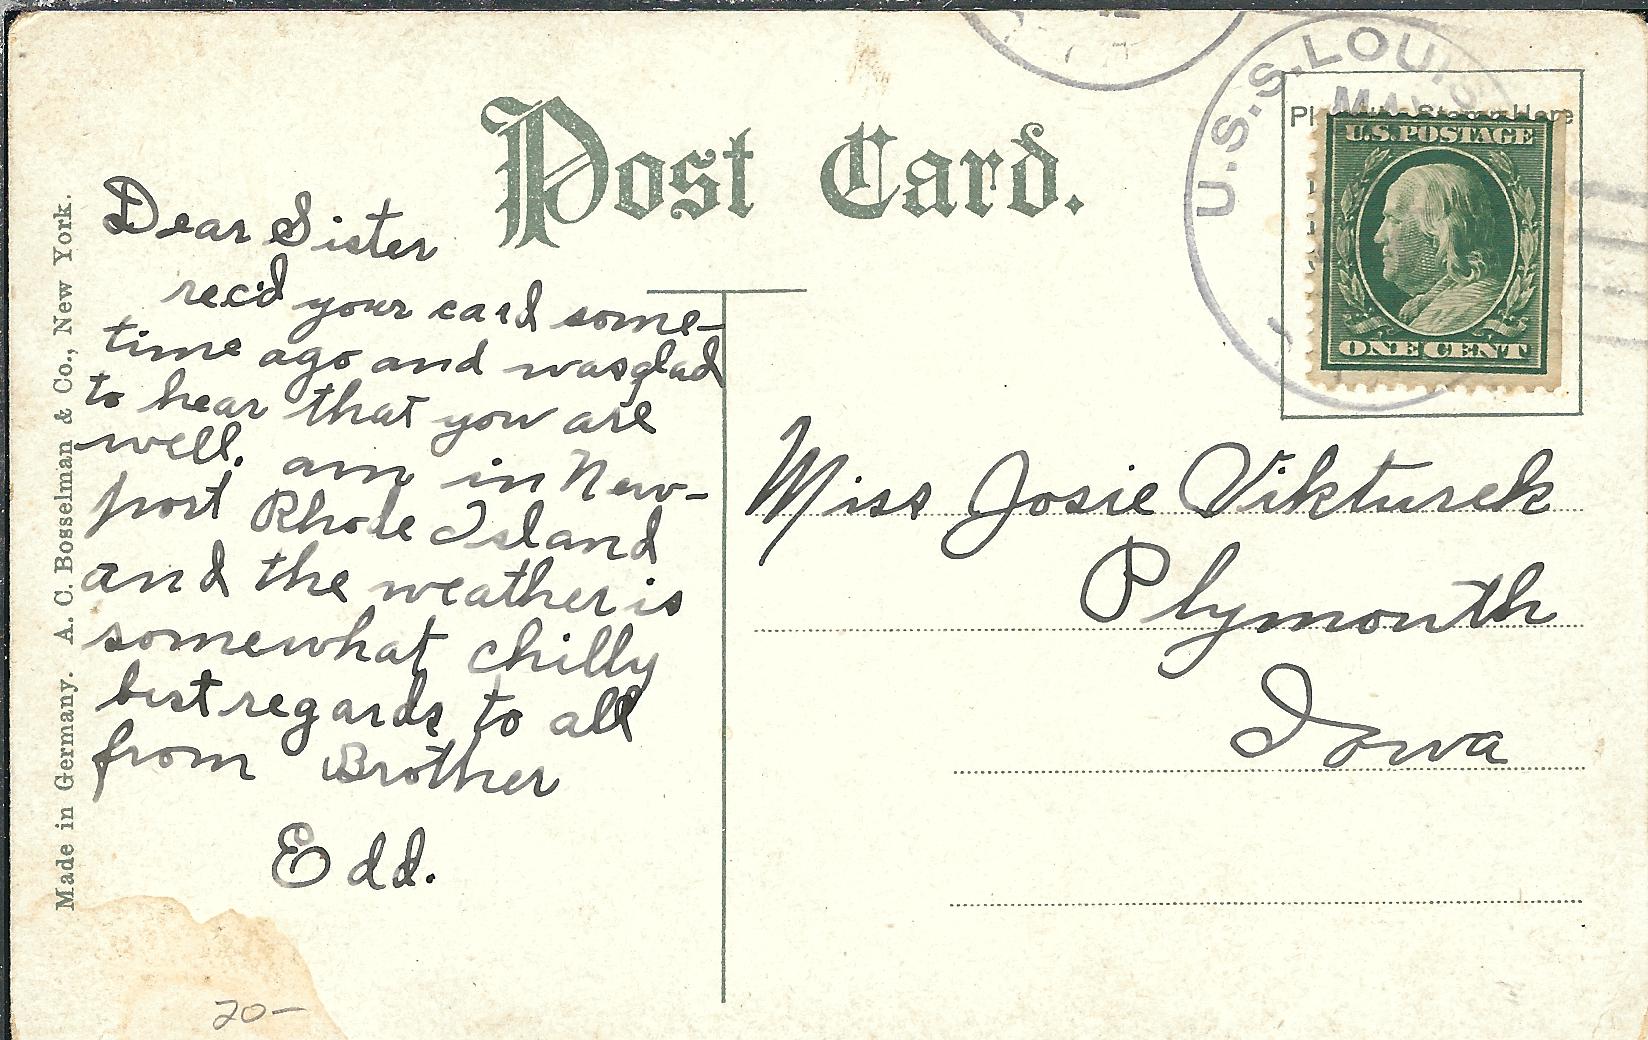 Post Card.
U.S.S. LOUIS
MAY
Here
U.S. POSTAGE
ONE CENT
Made in Germany. A. C. Bosselman & Co., New York.
Dear Sister
rec'd your card some-
time ago and was glad
to hear that you are
well. am in New-
port Rhode Island
and the weather is
somewhat chilly
best regards to all
from Brother
Edd.
Miss Josie Vikturek
Plymouth
Iowa
20-